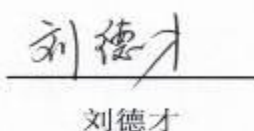 刘德才
刘德才